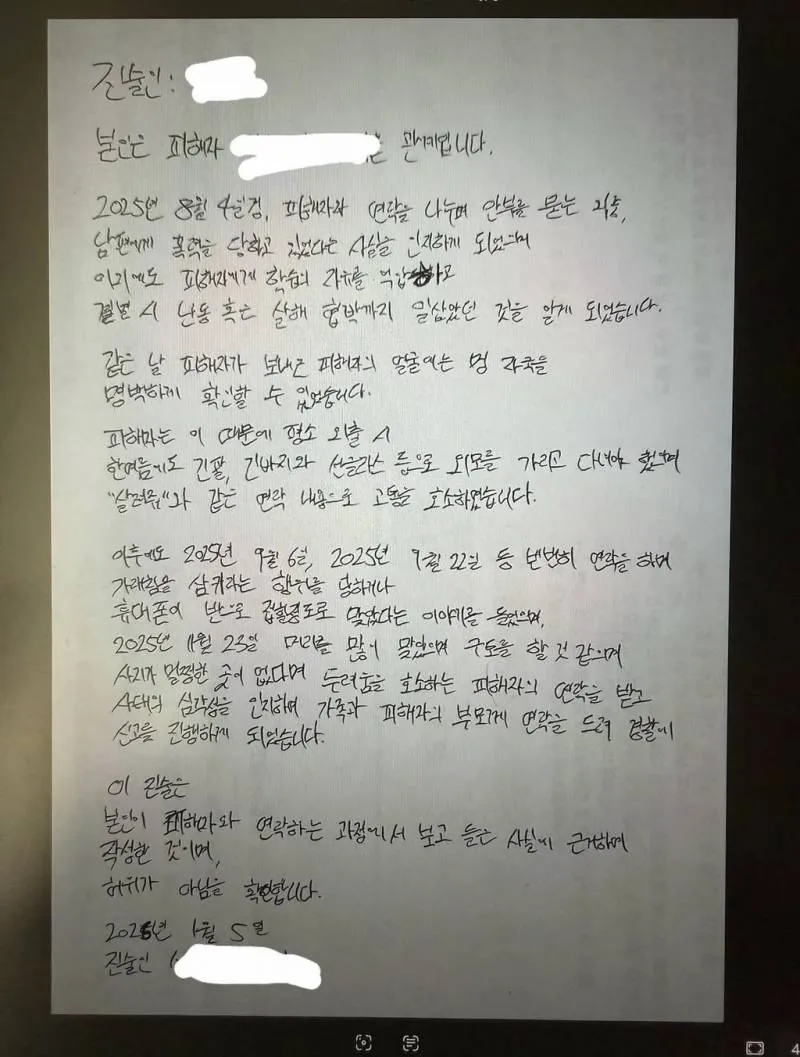 진술인:
본인은 피해자 관계입니다.
2025년 8월 4일경, 피해자와 연락을 나누며 안부를 묻는 과정 중,
남편에게 폭력을 당하고 있었다는 사실을 인지하게 되었으며
이외에도 피해자에게 학습의 자유를 억압하고
결별 시 난동 혹은 살해 협박까지 일삼았던 것을 알게 되었습니다.
같은 날 피해자가 보내준 피해자의 얼굴에는 멍 자국을
명백하게 확인할 수 있었습니다.
피해자는 이 때문에 평소 외출 시
한여름에도 긴팔, 긴바지와 선글라스 등으로 외모를 가리고 다녀야 했으며
"살려줘"와 같은 연락 내용으로 고통을 호소하였습니다.
이후에도 2025년 9월 6일, 2025년 9월 22일 등 빈번히 연락을 하며
가래침을 삼키라는 행위를 당하거나
휴대폰이 반으로 접힐 정도로 맞았다는 이야기를 들었으며,
2025년 11월 23일 머리를 많이 맞았으며 구토를 할 것 같으며
사지가 멀쩡한 곳이 없다며 두려움을 호소하는 피해자의 연락을 받고
사태의 심각성을 인지하며 가족과 피해자의 부모께 연락을 드려 경찰에
신고를 진행하게 되었습니다.
이 진술은
본인이 피해자와 연락하는 과정에서 보고 들은 사실에 근거하여
작성한 것이며,
허위가 아님을 확인합니다.
2026년 1월 5일
진술인
4